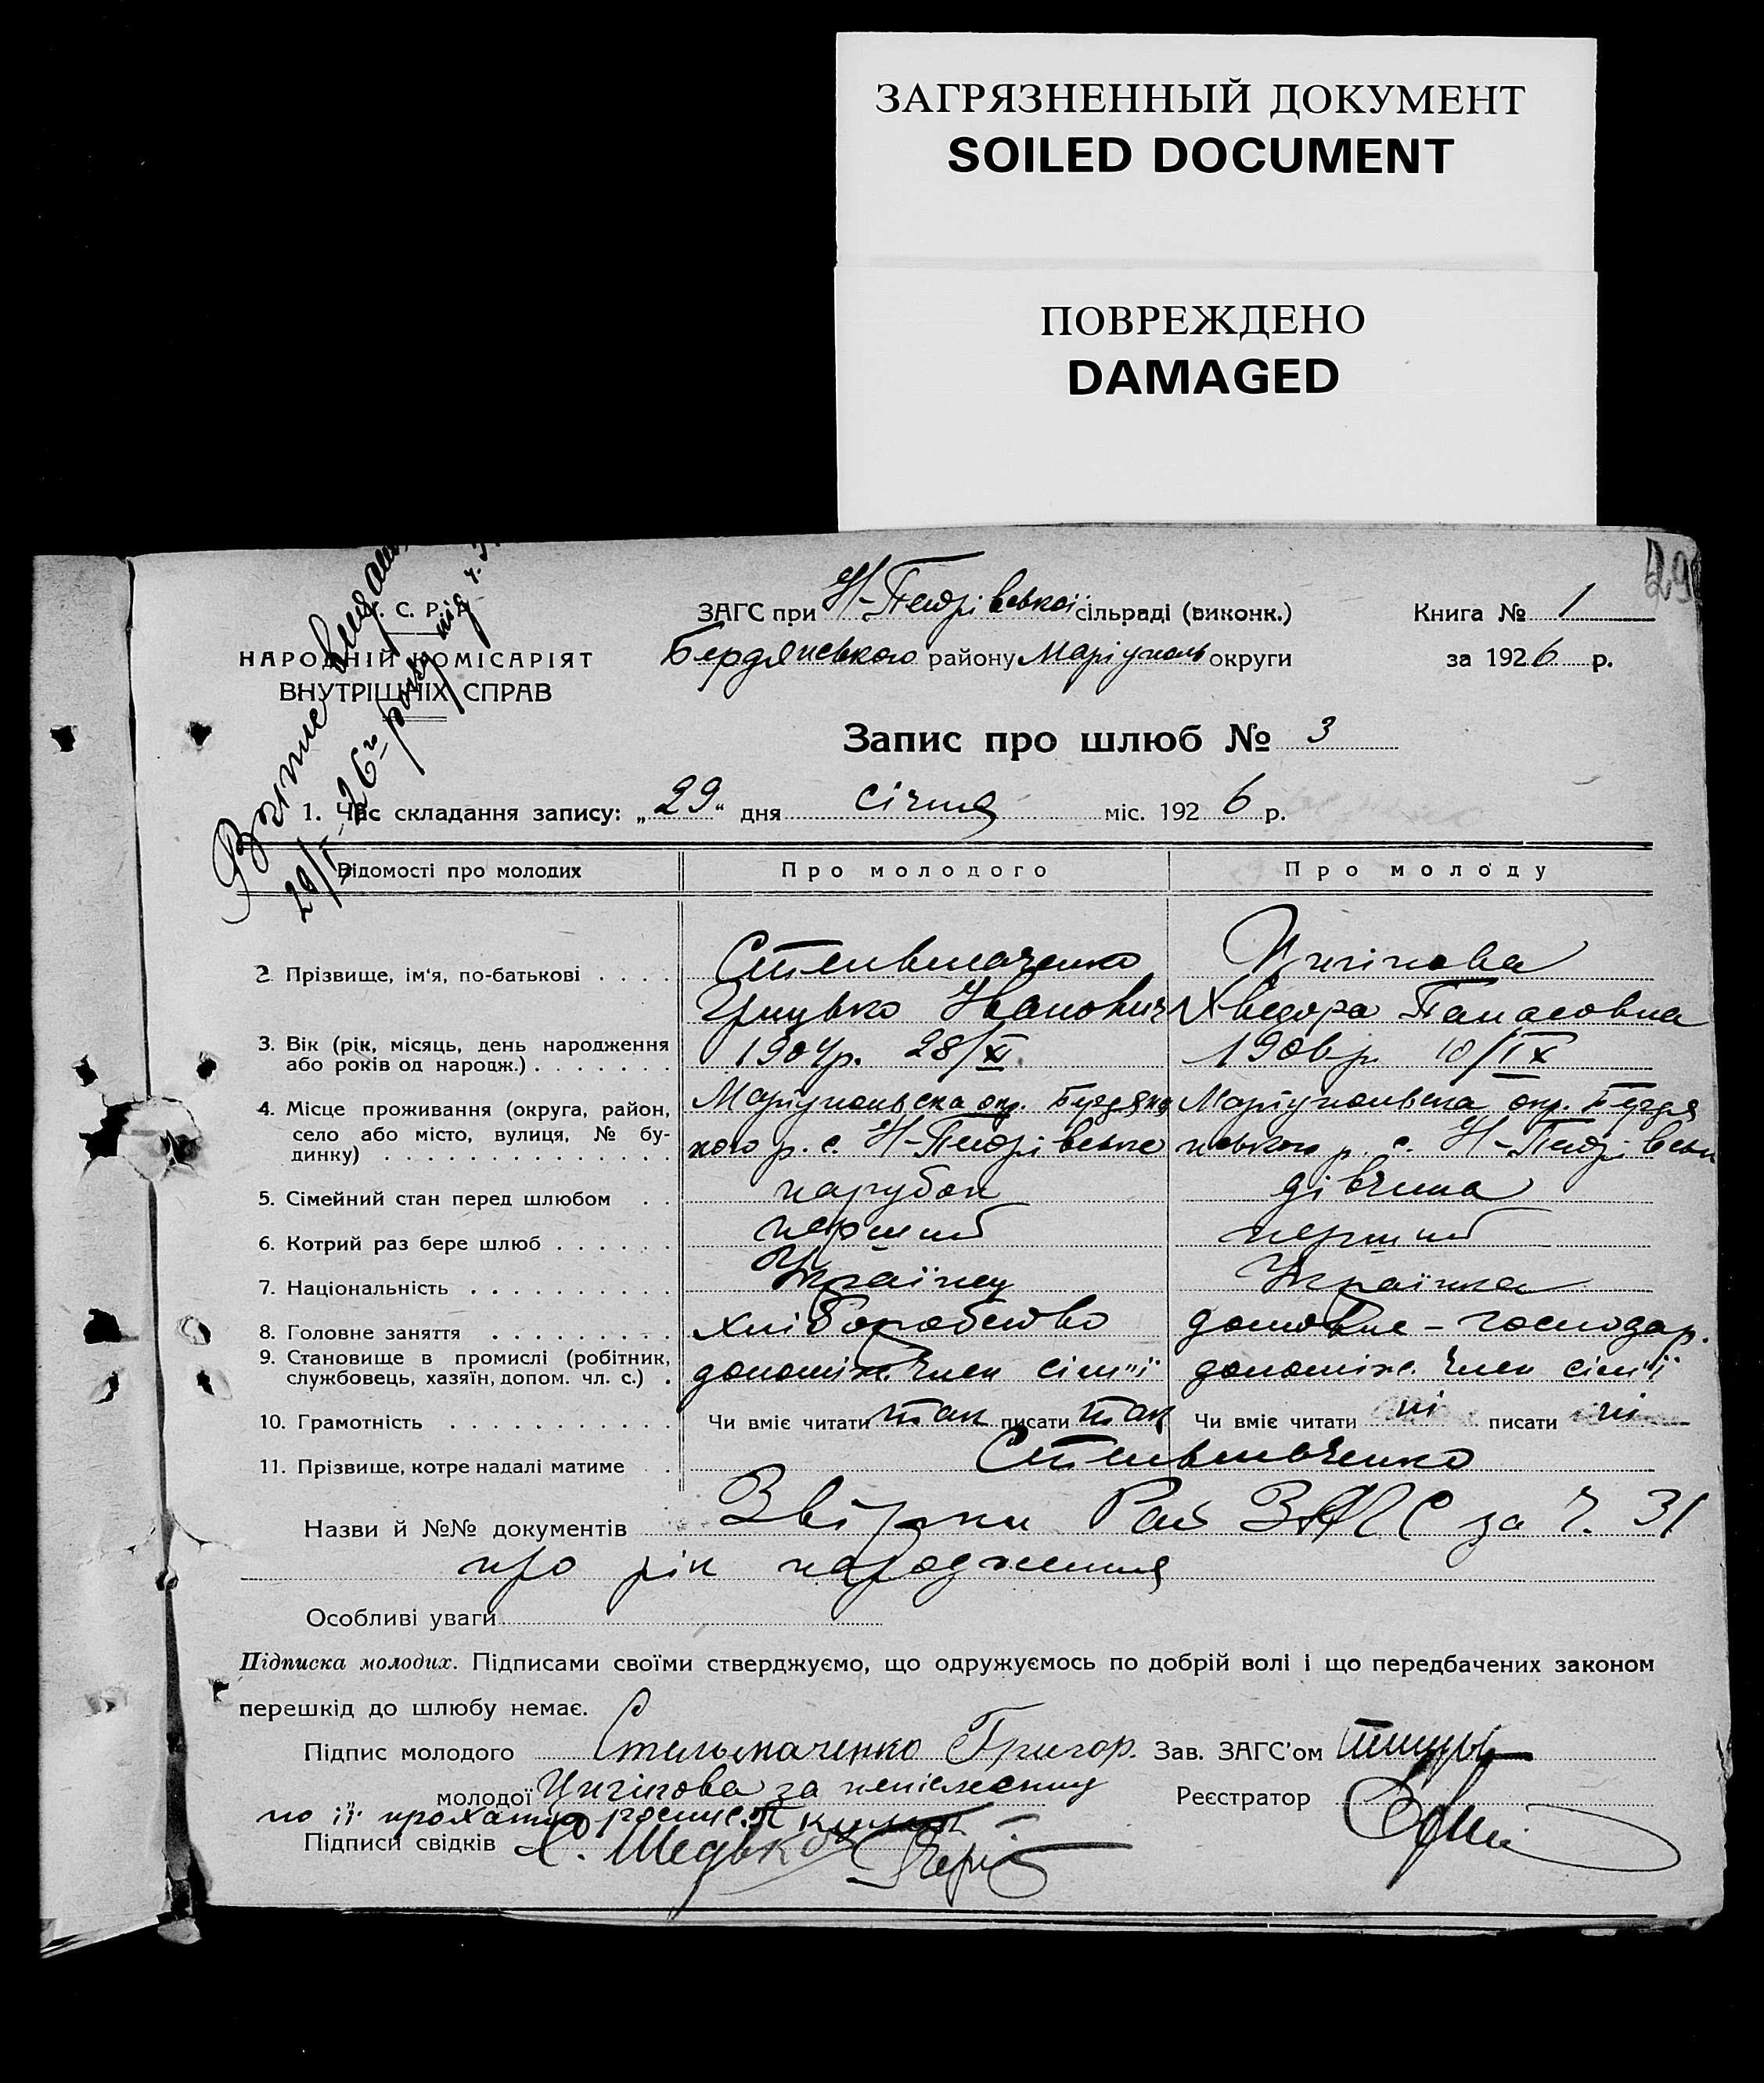 ЗАГРЯЗНЕННЫЙ ДОКУМЕНТ
SOILED DOCUMENT
ПОВРЕЖДЕНО
DAMAGED
29
С. Р. Р.
НАРОДНІЙ КОМІСАРІЯТ
ВНУТРІШНІХ СПРАВ
ЗАГС при Н-Петрівської сільраді (виконк.)
Книга № 1
Бердянського району Маріуполь округи
за 1926 р.
Запис про шлюб № 3
1. Час складання запису: „29“ дня січня міс. 1926 р.
Відомості про молодих Про молодого Про молоду
2 Прізвище, ім‘я, по-батькові . . . . Стельмаченко
Грицько Іванович Хведора Панасовна
3. Вік (рік, місяць, день народження
або років од народж.) . . . . . . . 1904р. 28/XI. 1906 р. 10/IX
4. Місце проживання (округа, район,
село або місто, вулиця, № бу-
динку) . . . . . . . . . . . . . .
Маріупольска окр. Бердянс Маріупольска окр. Бердя
кого р. с. Н-Петрівське нського р. с. Н-Петрівськ
5. Сімейний стан перед шлюбом . . парубок дівчина
6. Котрий раз бере шлюб . . . . . . перший перший
7. Національність . . . . . . . . . . Українец Українка
8. Головне заняття . . . . . . . . . хліборобство домовне - господар.
9. Становище в промислі (робітник,
службовець, хазяїн, допом. чл. с.) . допоміж. член сім"ї допоміж. член сім"ї
10. Грамотність . . . . . . . . . . . Чи вміє читати так писати так Чи вміє читати ні писати ні
11. Прізвище, котре надалі матиме . Стельмаченко
Назви й №№ документів Звірки Рай ЗАГС за ч. 31
про рік народження
Особливі уваги
Підписка молодих. Підписами своїми стверджуємо, що одружуємось по добрій волі і що передбачених законом
перешкід до шлюбу немає.
Підпис молодого Стельмаченко Григор. Зав. ЗАГС’ом
„ молодої за неписменну Реєстратор
по її проханню росписався
Підписи свідків